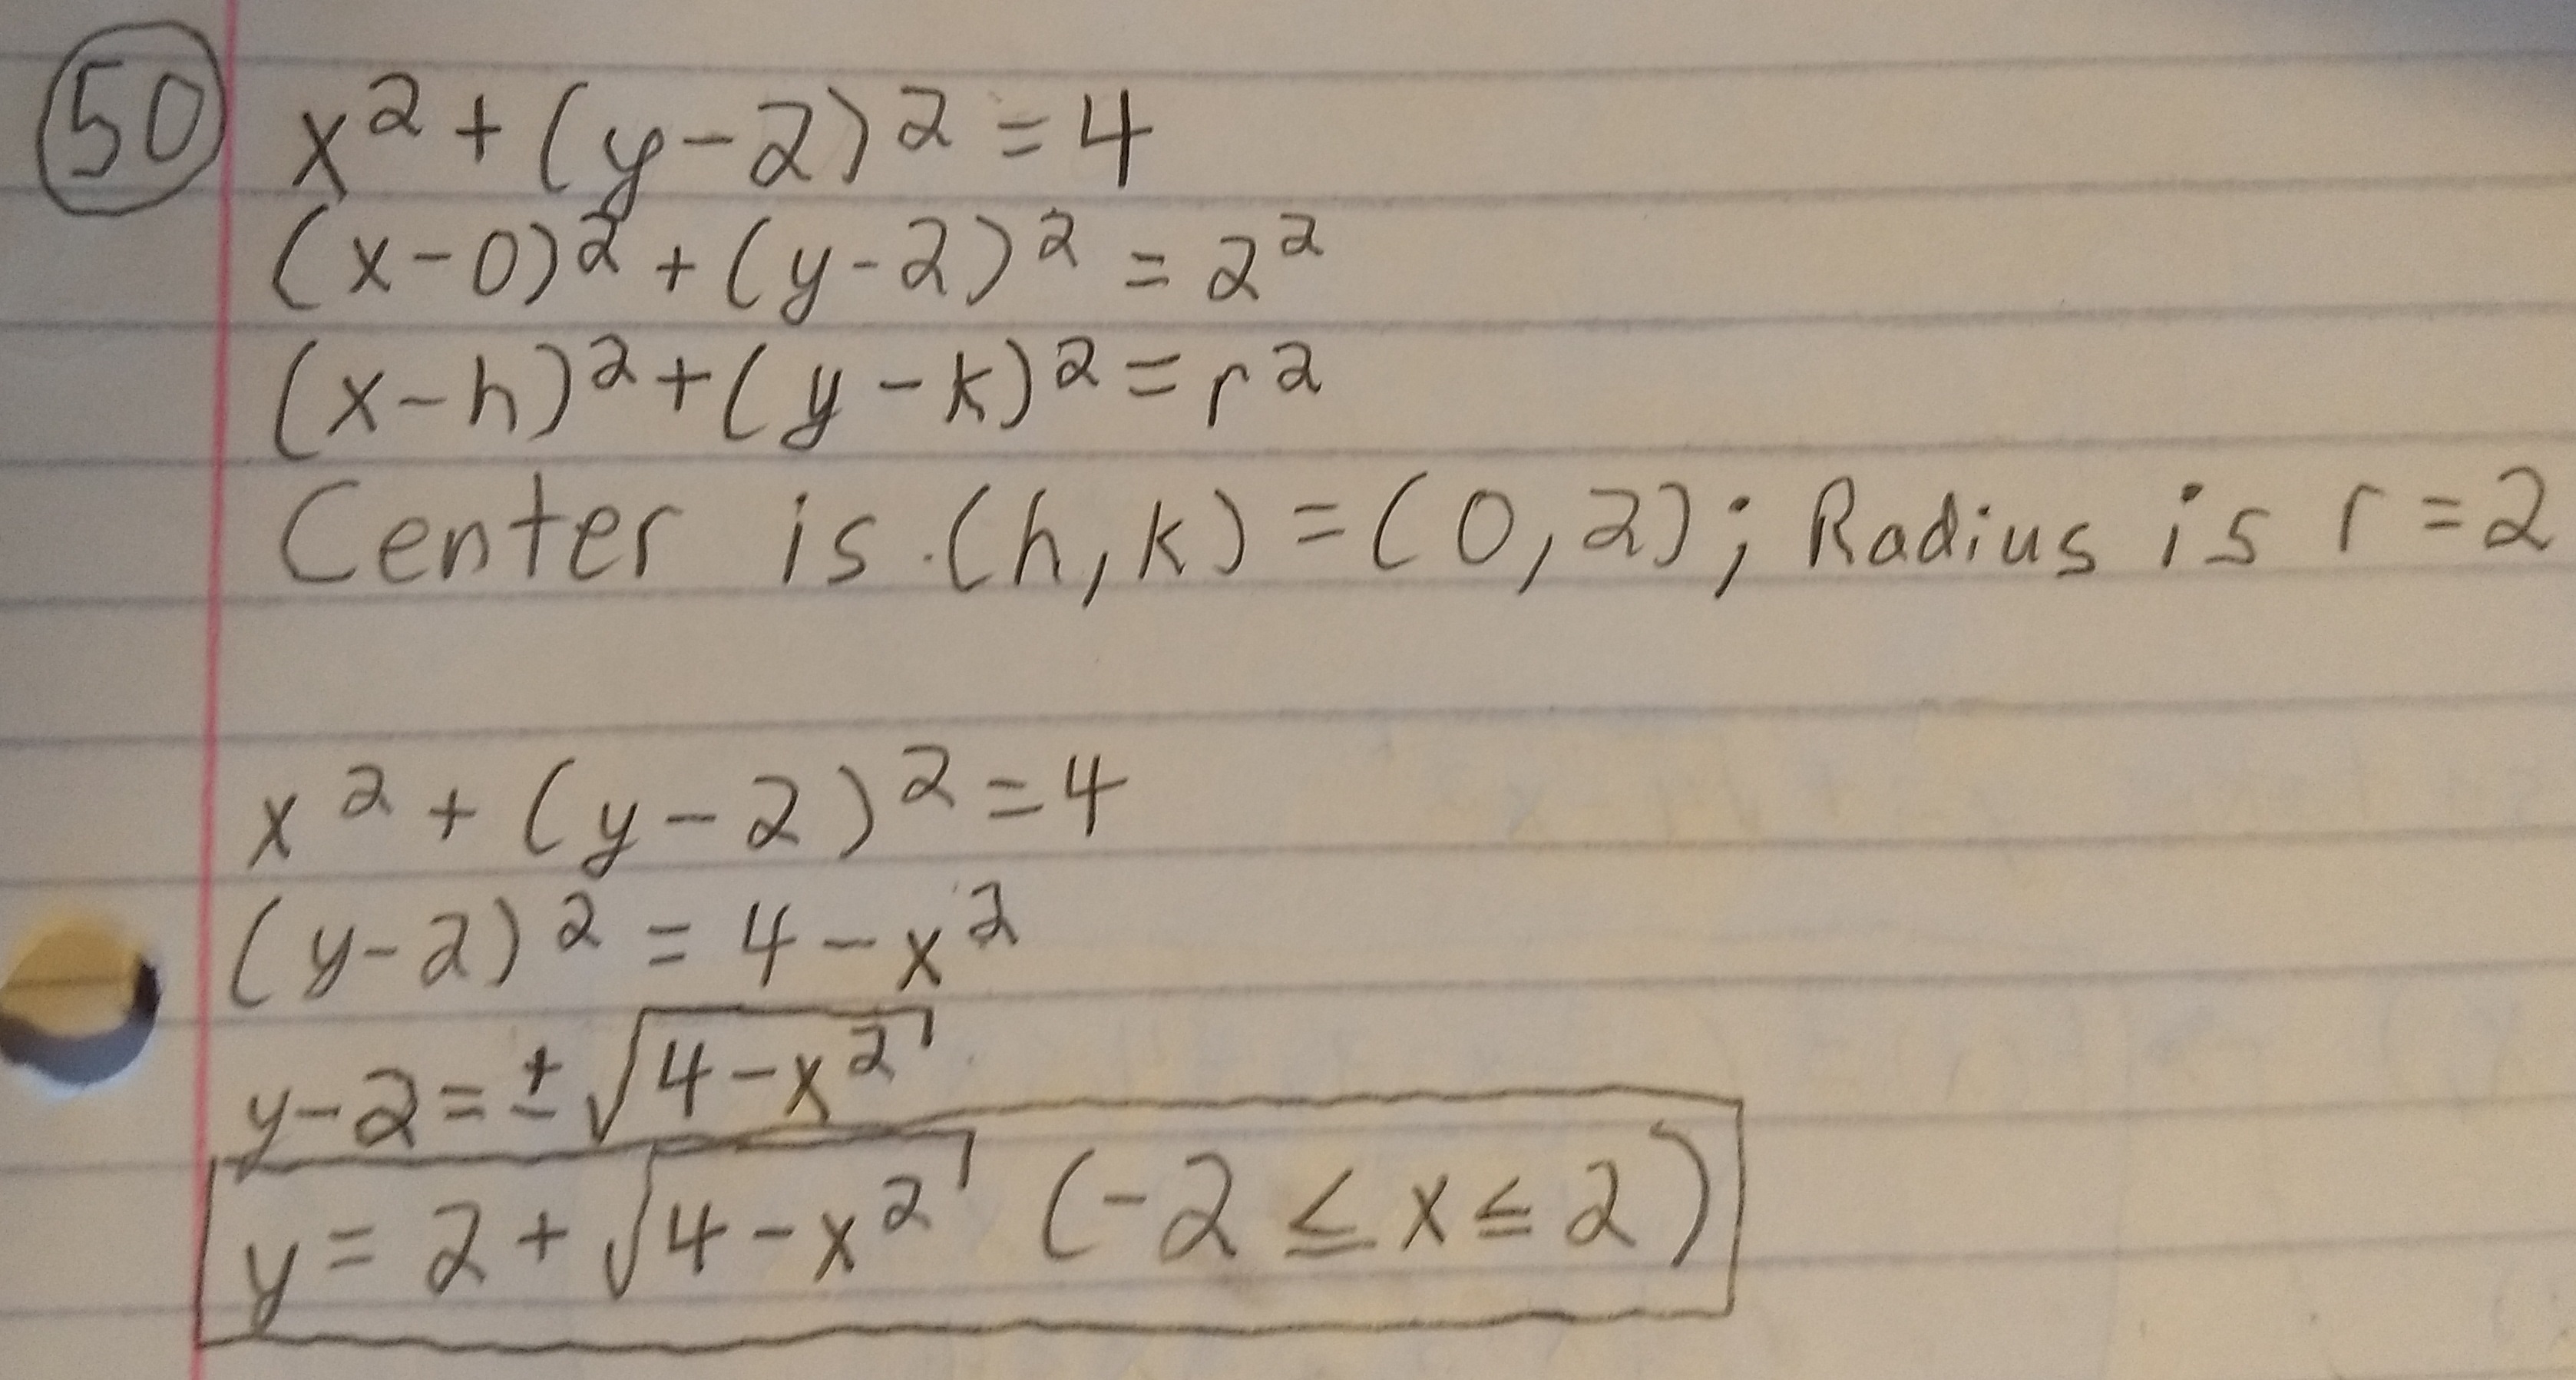 50 x² + (y-2)² = 4
(x-0)² + (y-2)² = 2²
(x-h)² + (y-k)² = r²
Center is (h,k) = (0,2); Radius is r = 2
x² + (y-2)² = 4
(y-2)² = 4-x²
y-2 = ±√(4-x²)
y = 2 + √(4-x²) (-2 ≤ x ≤ 2)